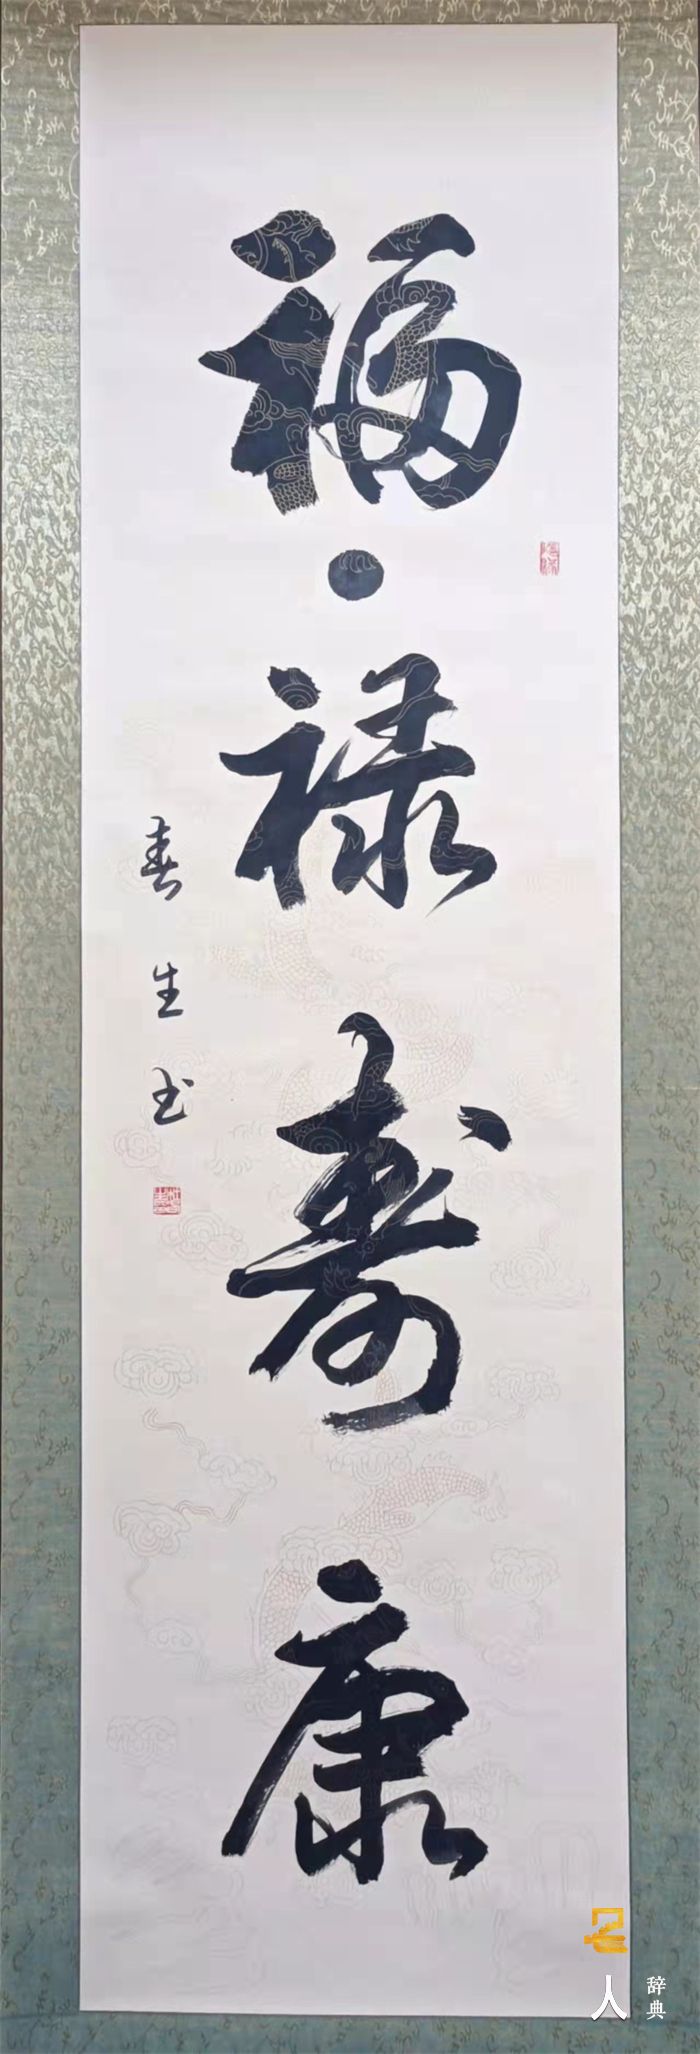 福·禄寿康
春生书
名人
辞典